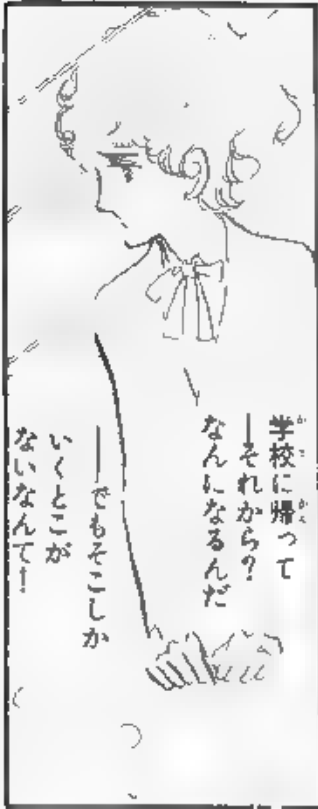 学校に帰って
―それから?
なんになるんだ
――でもそこしか
いくとこが
ないなんて!